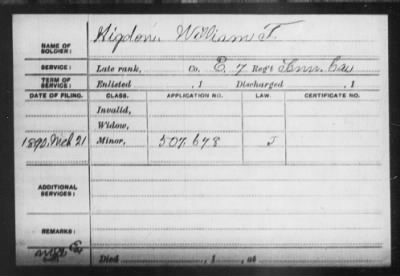 NAME OF SOLDIER: Higdon, William T.
SERVICE: Late rank, Co. E, 7 Reg't Tenn Cav
TERM OF SERVICE: Enlisted , 1 Discharged , 1
DATE OF FILING. CLASS. APPLICATION NO. LAW. CERTIFICATE NO.
Invalid,
Widow,
1890, Mch 21 Minor, 507.678 J
ADDITIONAL SERVICES:
REMARKS:
Died , 1 , at